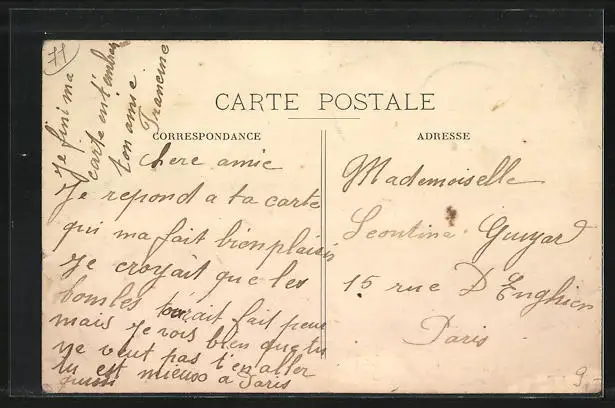 77
CARTE POSTALE
CORRESPONDANCE
chere amie
Je repond a ta carte
qui ma fait bien plaisir
Je croyait que les
bombes taurait fait peur
mais Je vois bien que tu
ne veut pas t'en aller
tu est mieux a Paris
Je fini ma
carte en t'embras
ton amie
Francine
ADRESSE
Mademoiselle
Leontine Guyard
15 rue D'Enghien
Paris
9